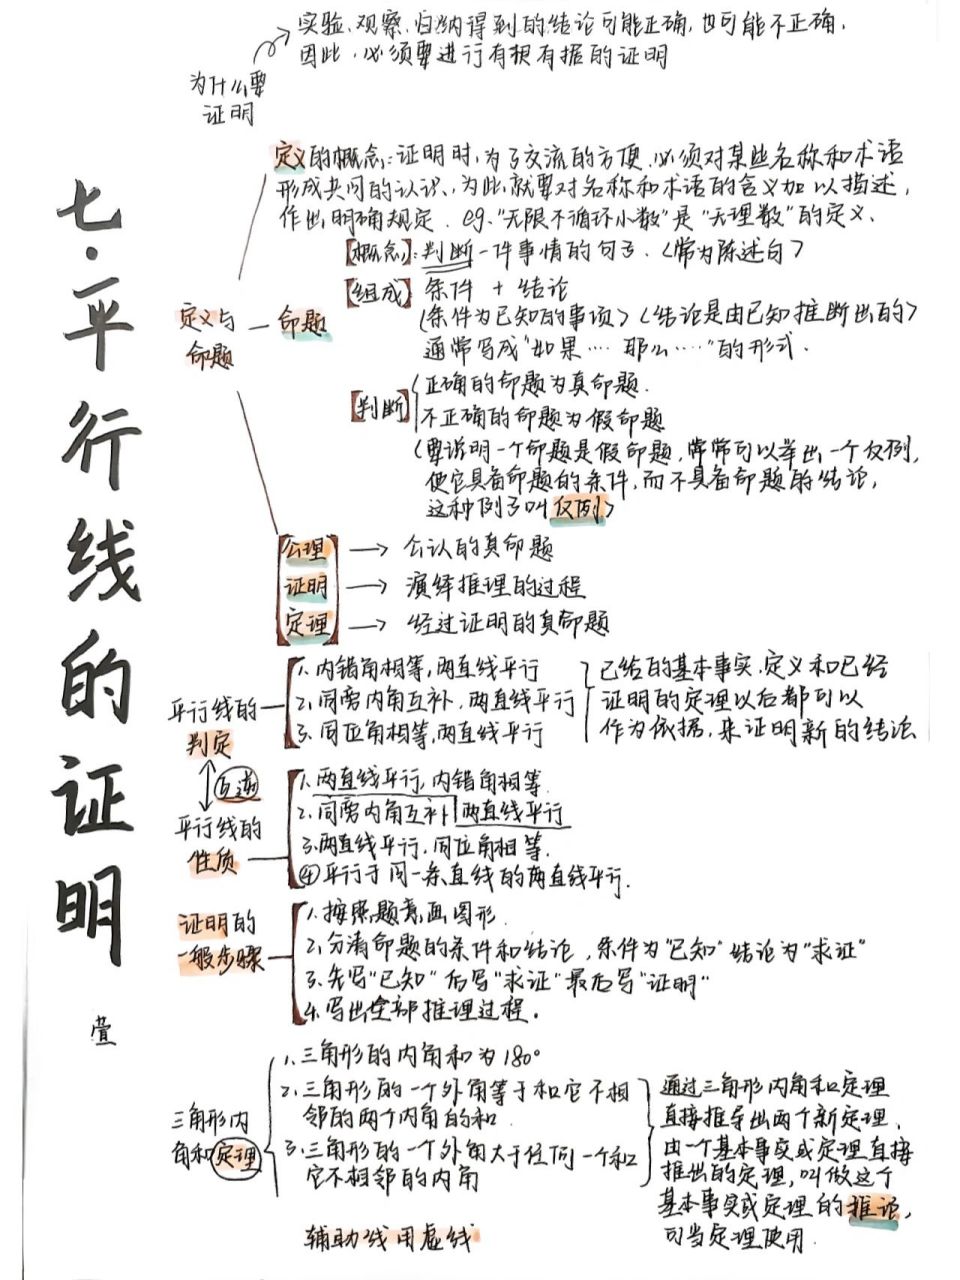 七.平行线的证明
萱
为什么要
证明
实验、观察、归纳得到的结论可能正确,也可能不正确.
因此,必须要进行有根有据的证明
定义与
命题
定义的概念:证明时,为了交流的方便,必须对某些名称和术语
形成共同的认识,为此,就要对名称和术语的含义加以描述,
作出明确规定. eg."无限不循环小数"是"无理数"的定义.
命题
【概念】:判断一件事情的句子.(常为陈述句)
【组成】条件 + 结论
(条件为已知的事项)(结论是由已知推断出的)
通常写成"如果…… 那么……"的形式.
【判断】
正确的命题为真命题.
不正确的命题为假命题
(要说明一个命题是假命题,常常可以举出一个反例,
使它具备命题的条件,而不具备命题的结论,
这种例子叫反例)
公理 → 公认的真命题
证明 → 演绎推理的过程
定理 → 经过证明的真命题
平行线的
判定
1.内错角相等,两直线平行
2.同旁内角互补,两直线平行
3.同位角相等,两直线平行
已结的基本事实.定义和已经
证明的定理以后都可以
作为依据,来证明新的结论
互逆
平行线的
性质
1.两直线平行,内错角相等.
2.同旁内角互补 两直线平行
3.两直线平行,同位角相等.
④平行于同一条直线的两直线平行.
证明的
一般步骤
1.按照题意,画图形.
2.分清命题的条件和结论,条件为"已知"结论为"求证"
3.先写"已知"后写"求证"最后写"证明"
4.写出全部推理过程.
三角形内
角和定理
1.三角形的内角和为180°
2.三角形的一个外角等于和它不相
邻的两个内角的和.
3.三角形的一个外角大于任何一个和
它不相邻的内角
通过三角形内角和定理
直接推导出两个新定理.
由一个基本事实或定理直接
推出的定理,叫做这个
基本事实或定理的推论,
可当定理使用.
辅助线用虚线